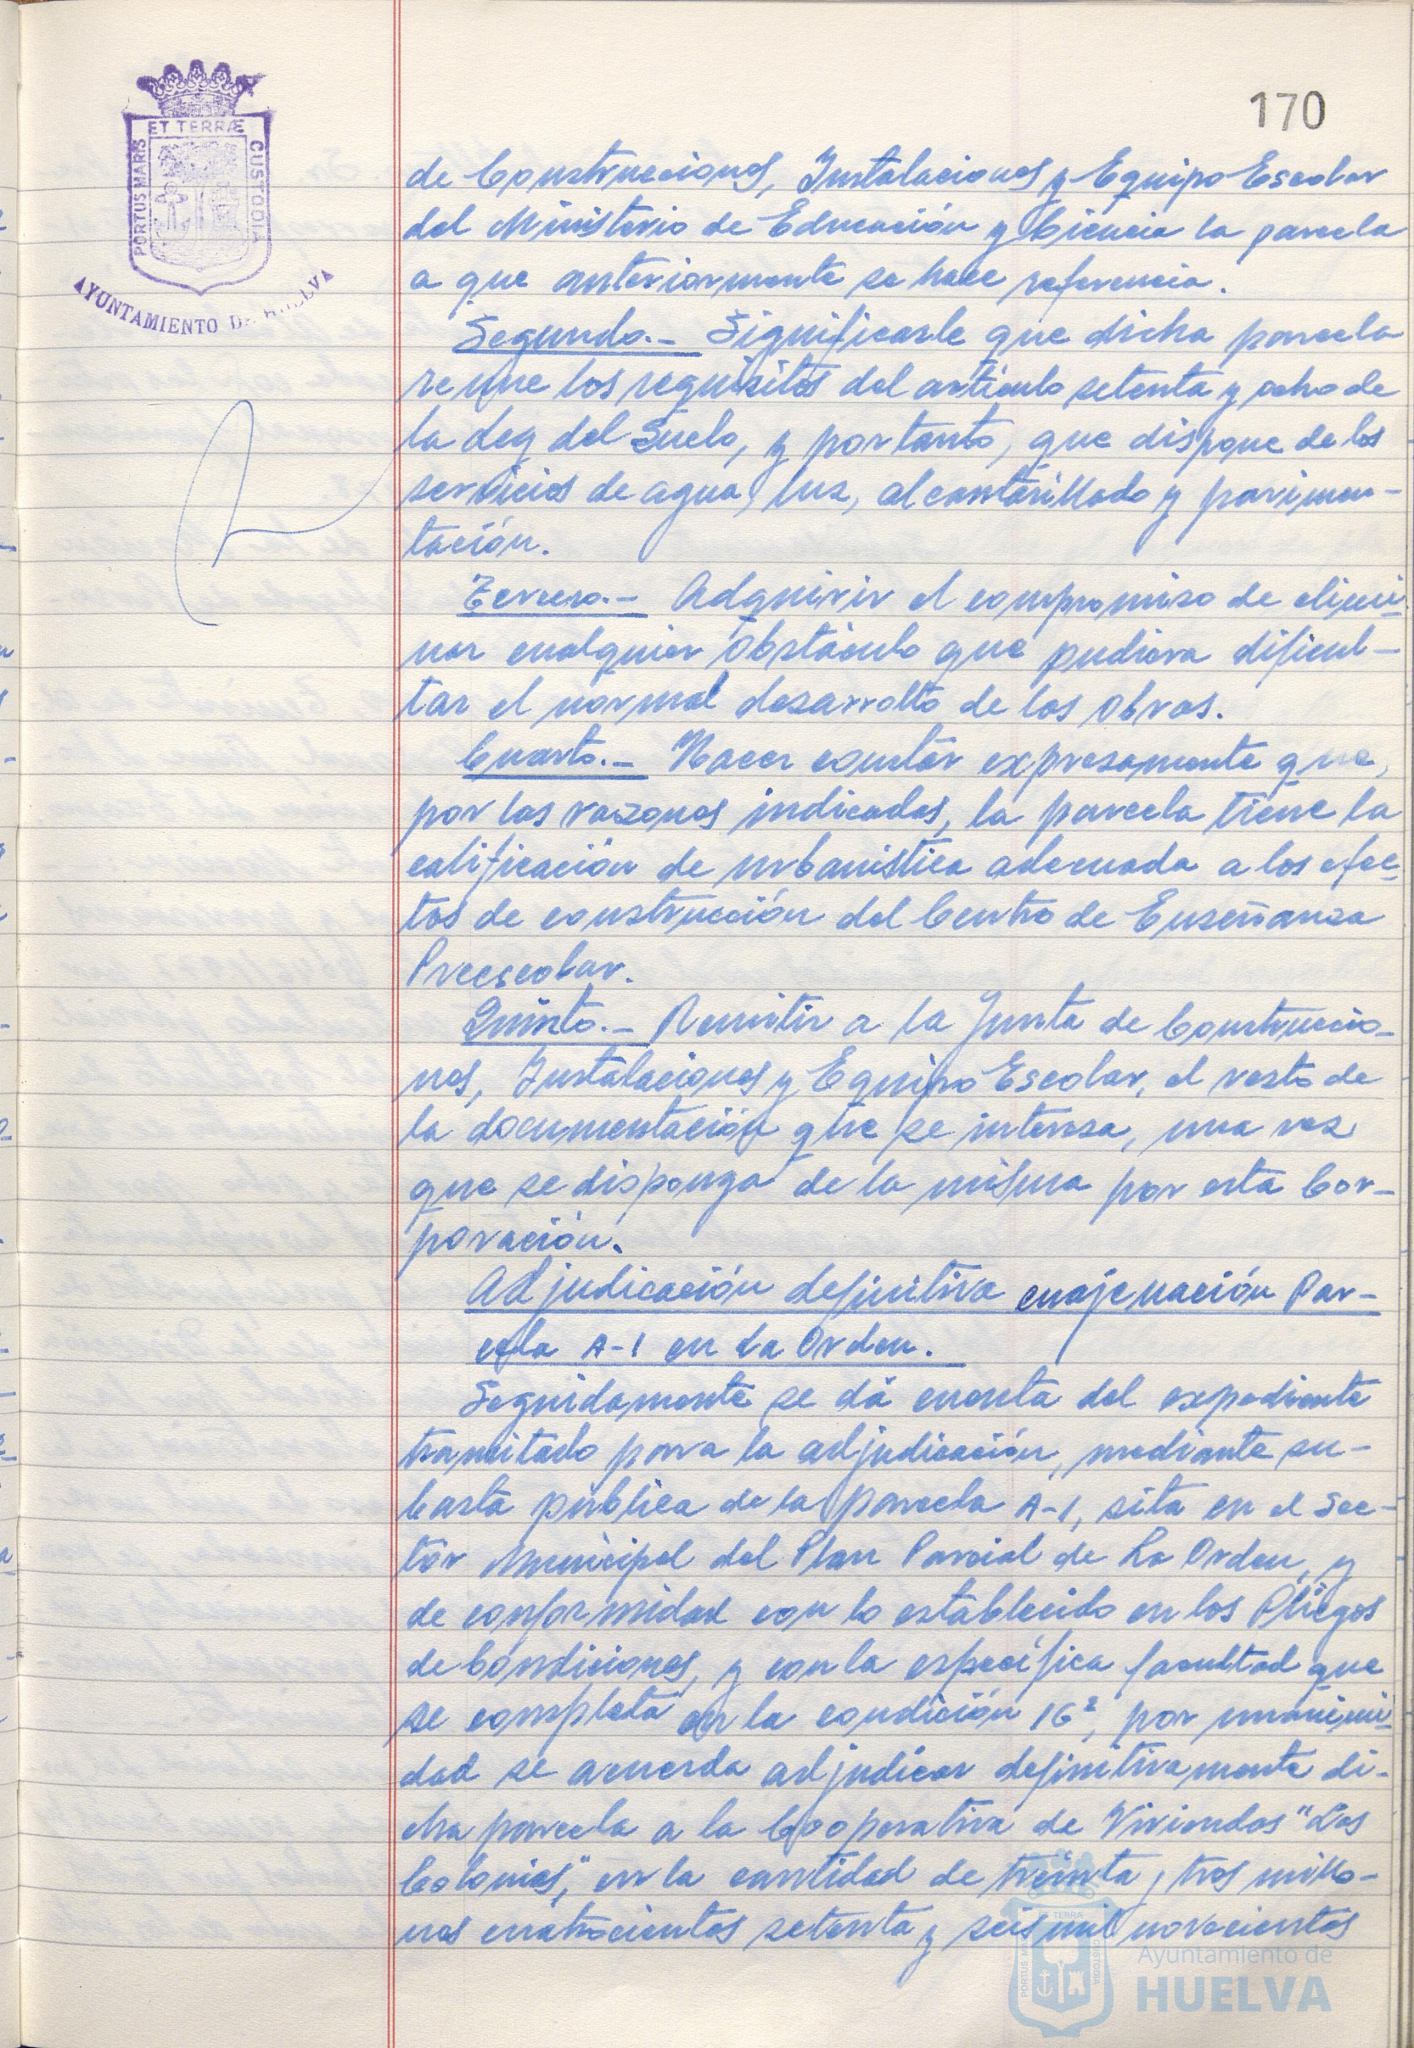 170
ET TERRÆ
PORTUS MARIS
CUSTODIA
AYUNTAMIENTO DE HUELVA
de Construcciones, Instalaciones y Equipo Escolar
del Ministerio de Educación y Ciencia la parcela
a que anteriormente se hace referencia.
Segundo.- Significarle que dicha parcela
reune los requisitos del artículo setenta y ocho de
la Ley del Suelo, y por tanto, que dispone de los
servicios de agua, luz, alcantarillado y pavimen-
tación.
Tercero.- Adquirir el compromiso de elimi-
nar cualquier obstáculo que pudiera dificul-
tar el normal desarrollo de las obras.
Cuarto.- Hacer constar expresamente que,
por las razones indicadas, la parcela tiene la
calificación de urbanística adecuada a los efec-
tos de construcción del Centro de Enseñanza
Preescolar.
Quinto.- Remitir a la Junta de Construccio-
nes, Instalaciones y Equipo Escolar, el resto de
la documentación que se interesa, una vez
que se disponga de la misma por esta Cor-
poración.
Adjudicación definitiva enajenación Par-
cela A-1 en La Orden.
Seguidamente se dá cuenta del expediente
tramitado para la adjudicación, mediante su-
basta pública de la parcela A-1, sita en el Sec-
tor Municipal del Plan Parcial de La Orden, y
de conformidad con lo establecido en los Pliegos
de Condiciones, y con la específica facultad que
se completa en la condición 16ª, por unanimi-
dad se acuerda adjudicar definitivamente di-
cha parcela a la Cooperativa de Viviendas "Las
Colonias", en la cantidad de treinta y tres millo-
nes cuatrocientas setenta y seis mil novecientas
TERRÆ
PORTUS
CUSTODIA
Ayuntamiento de
HUELVA